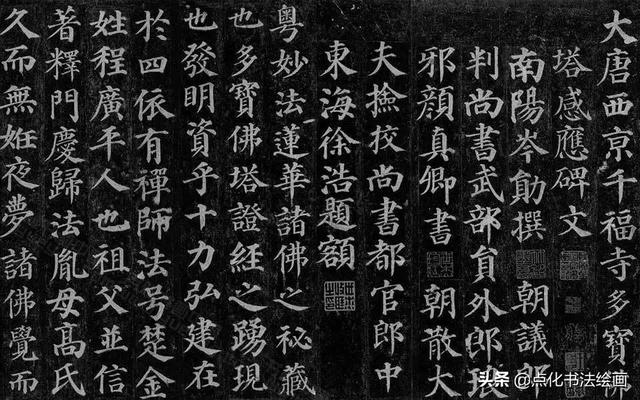 大唐西亰千福寺多寶佛
塔感應碑文
南陽岑勛撰 朝議郎
判尚書武部員外郎琅
邪顏真卿書 朝散大
夫撿挍尚書都官郎中
東海徐浩題額
粤妙法蓮華諸佛之秘藏
也多寶佛塔證經之踴現
也發明資乎十力弘建在
於四依有禪師法号楚金
姓程廣平人也祖父並信
著釋門慶歸法胤母高氏
久而無姙夜夢諸佛覺而
头条 @点化书法绘画